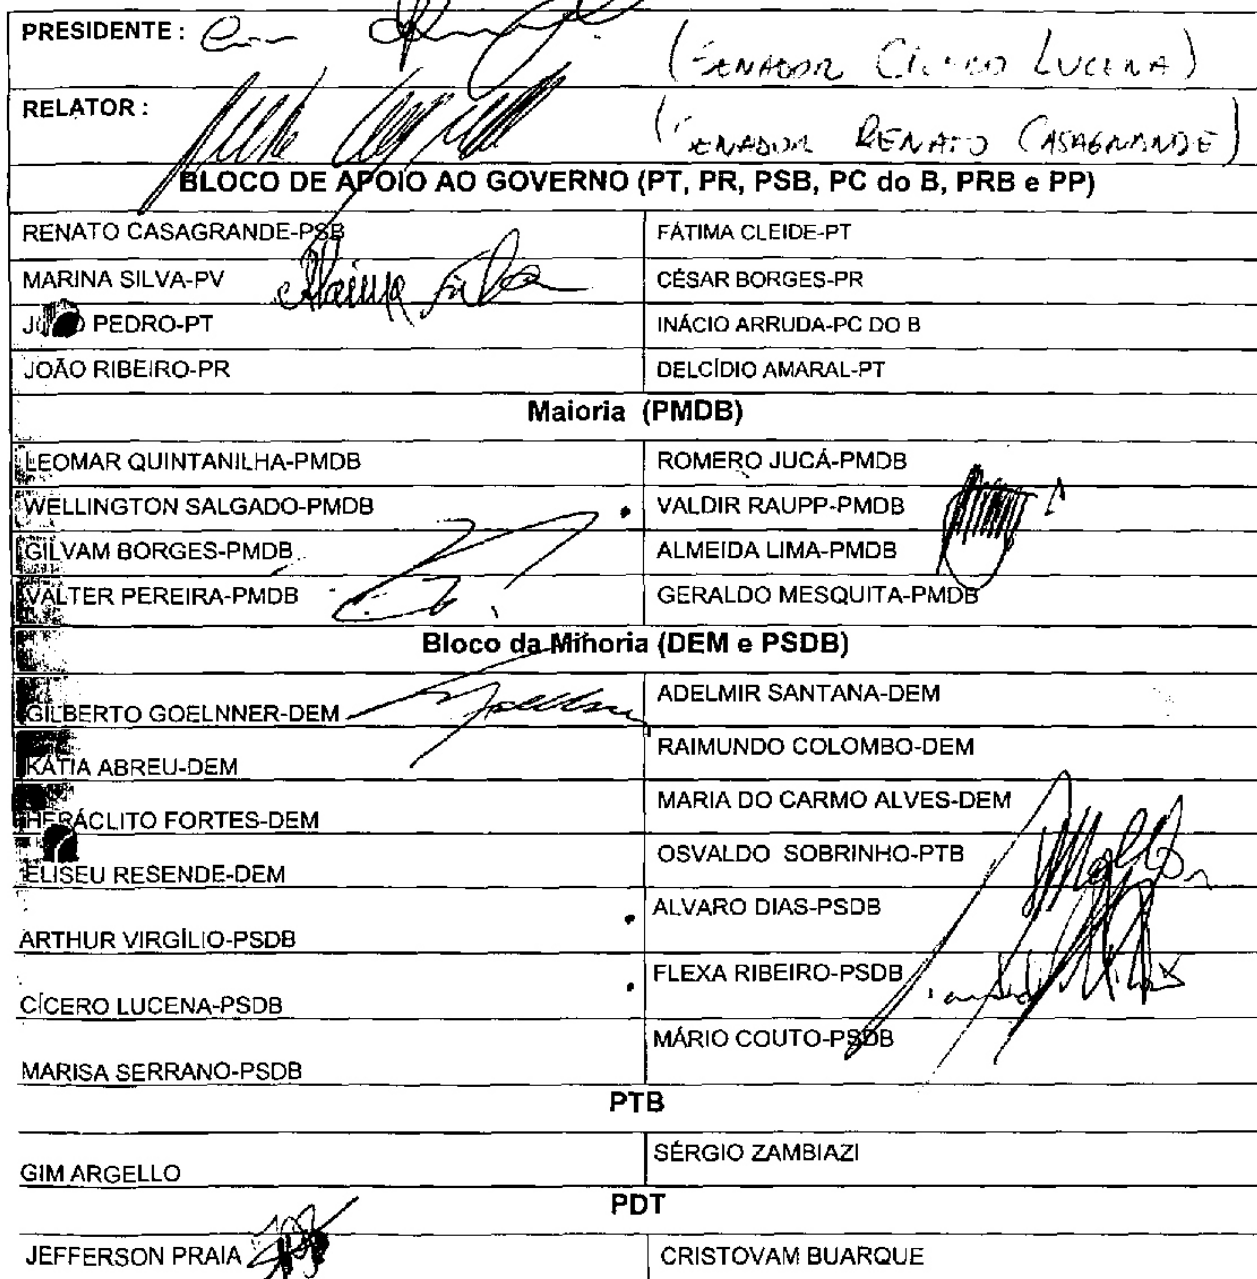 PRESIDENTE :
(SENADOR CÍCERO LUCENA)
RELATOR :
(SENADOR RENATO CASAGRANDE)
BLOCO DE APOIO AO GOVERNO (PT, PR, PSB, PC do B, PRB e PP)
RENATO CASAGRANDE-PSB FÁTIMA CLEIDE-PT
MARINA SILVA-PV Marina Silva CÉSAR BORGES-PR
PEDRO-PT INÁCIO ARRUDA-PC DO B
JOÃO RIBEIRO-PR DELCÍDIO AMARAL-PT
Maioria (PMDB)
LEOMAR QUINTANILHA-PMDB ROMERO JUCÁ-PMDB
WELLINGTON SALGADO-PMDB VALDIR RAUPP-PMDB
GILVAM BORGES-PMDB ALMEIDA LIMA-PMDB
VALTER PEREIRA-PMDB GERALDO MESQUITA-PMDB
Bloco da Minoria (DEM e PSDB)
GILBERTO GOELNNER-DEM ADELMIR SANTANA-DEM
KÁTIA ABREU-DEM RAIMUNDO COLOMBO-DEM
HERÁCLITO FORTES-DEM MARIA DO CARMO ALVES-DEM
ELISEU RESENDE-DEM OSVALDO SOBRINHO-PTB
ARTHUR VIRGÍLIO-PSDB ALVARO DIAS-PSDB
CÍCERO LUCENA-PSDB FLEXA RIBEIRO-PSDB
MARISA SERRANO-PSDB MÁRIO COUTO-PSDB
PTB
GIM ARGELLO SÉRGIO ZAMBIAZI
PDT
JEFFERSON PRAIA CRISTOVAM BUARQUE